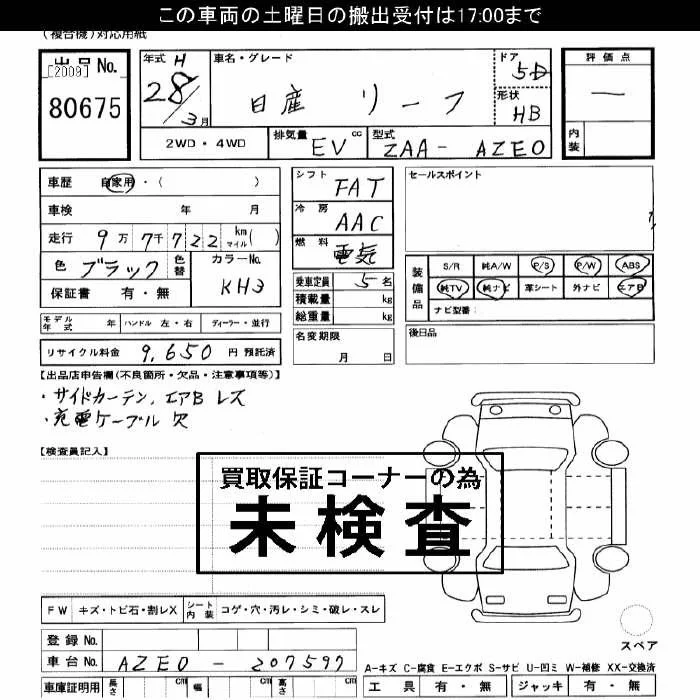 この車両の土曜日の搬出受付は17:00まで
(複合機)対応用紙
出品No.
[2009]
80675
年式 H 28/3月
車名・グレード
日産 リーフ
ドア 5D
形状 HB
評価点
―
内装
2WD・4WD
排気量 EV cc
型式 ZAA- AZE0
車歴 自家用・( )
車検 年 月
走行 9万7千722 km マイル( )
色 ブラック 色替
カラーNo. KH3
保証書 有・無
シフト FAT
冷房 AAC
燃料 電気
乗車定員 5名
積載量 kg
総重量 kg
名変期限
月 日
セールスポイント
装備品
S/R 純A/W P/S P/W ABS
純TV 純ナビ 革シート 外ナビ エアB
ナビ型番:
後日品
モデル年式 年 ハンドル 左・右 ディーラー・並行
リサイクル料金 9,650 円 預託済
【出品店申告欄(不良箇所・欠品・注意事項等)】
・サイドカーテン,エアB レス
・充電ケーブル 欠
【検査員記入】
買取保証コーナーの為
未検査
FW キズ・トビ石・割レX シート内装 コゲ・穴・汚レ・シミ・破レ・スレ
登録No.
車台No. AZE0 - 207597
車庫証明用 長さ cm 幅 cm 高さ cm
スペア
A-キズ C-腐食 E-エクボ S-サビ U-凹ミ W-補修 XX-交換済
工具 有・無 ジャッキ 有・無